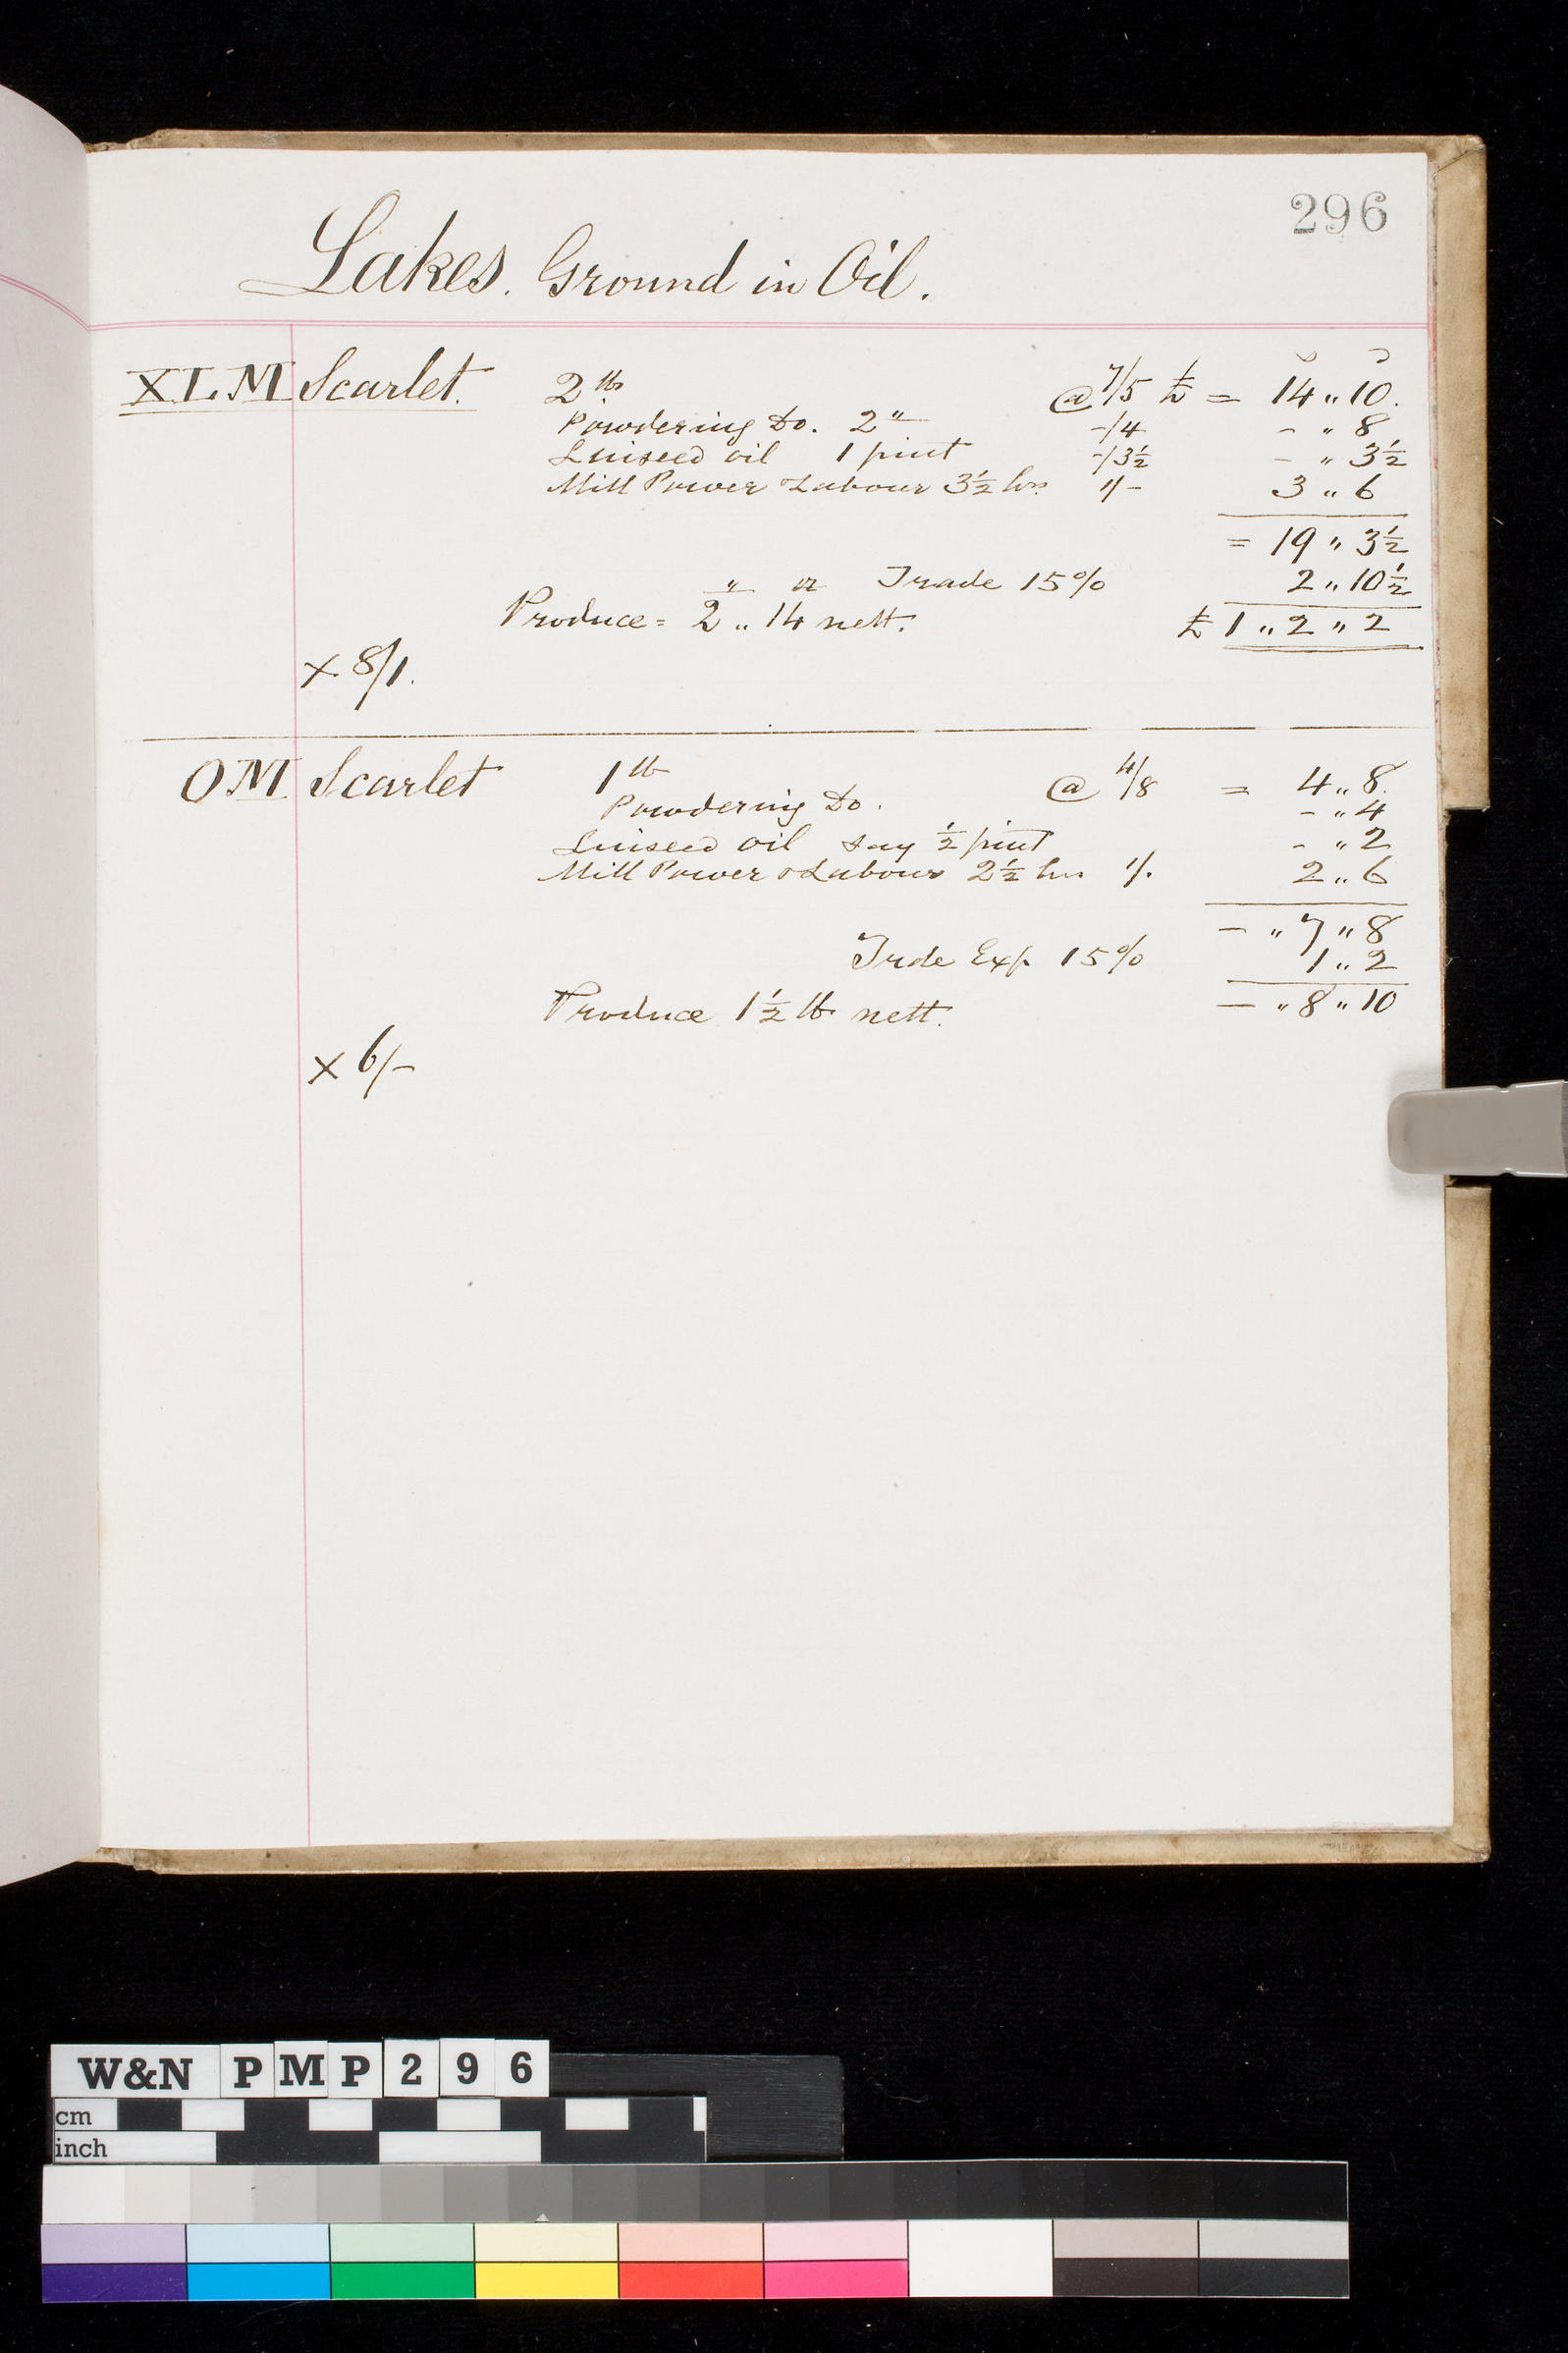 296
Lakes. Ground in Oil.
XLM Scarlet. 2 lbs @ 7/5 lb = 14 " 10.
Powdering Do. 2 " -/4 - " 8
Linseed oil 1 pint -/3½ - " 3½
Mill Power & Labour 3½ hrs 1/- 3 " 6
= 19 " 3½
Trade 15% 2 " 10½
lb oz
Produce = 2 " 14 nett. £ 1 " 2 " 2
x 8/1.
OM Scarlet 1 lb @ 4/8 = 4 " 8.
Powdering Do. - " 4
Linseed oil say ½ pint - " 2
Mill Power & Labour 2½ hrs 1/- 2 " 6
- " 7 " 8
Trde Exp 15% 1 " 2
Produce 1½ lb nett. - " 8 " 10
x 6/-
W&N PMP296
cm
inch